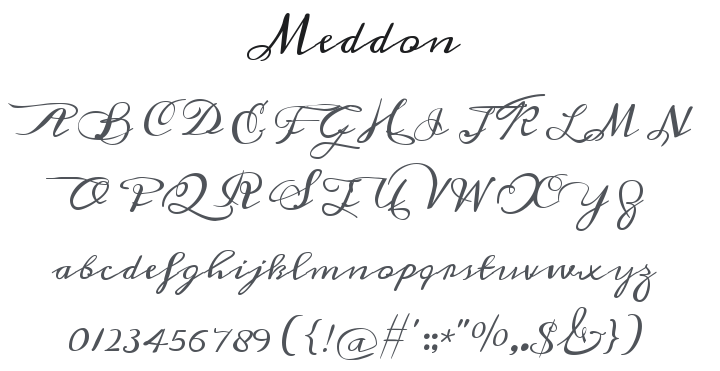 Meddon
A B C D E F G H I J K L M N
O P Q R S T U V W X Y Z
abcdefghijklmnopqrstuvwxyz
0123456789({!@#':;*"%,.$&})